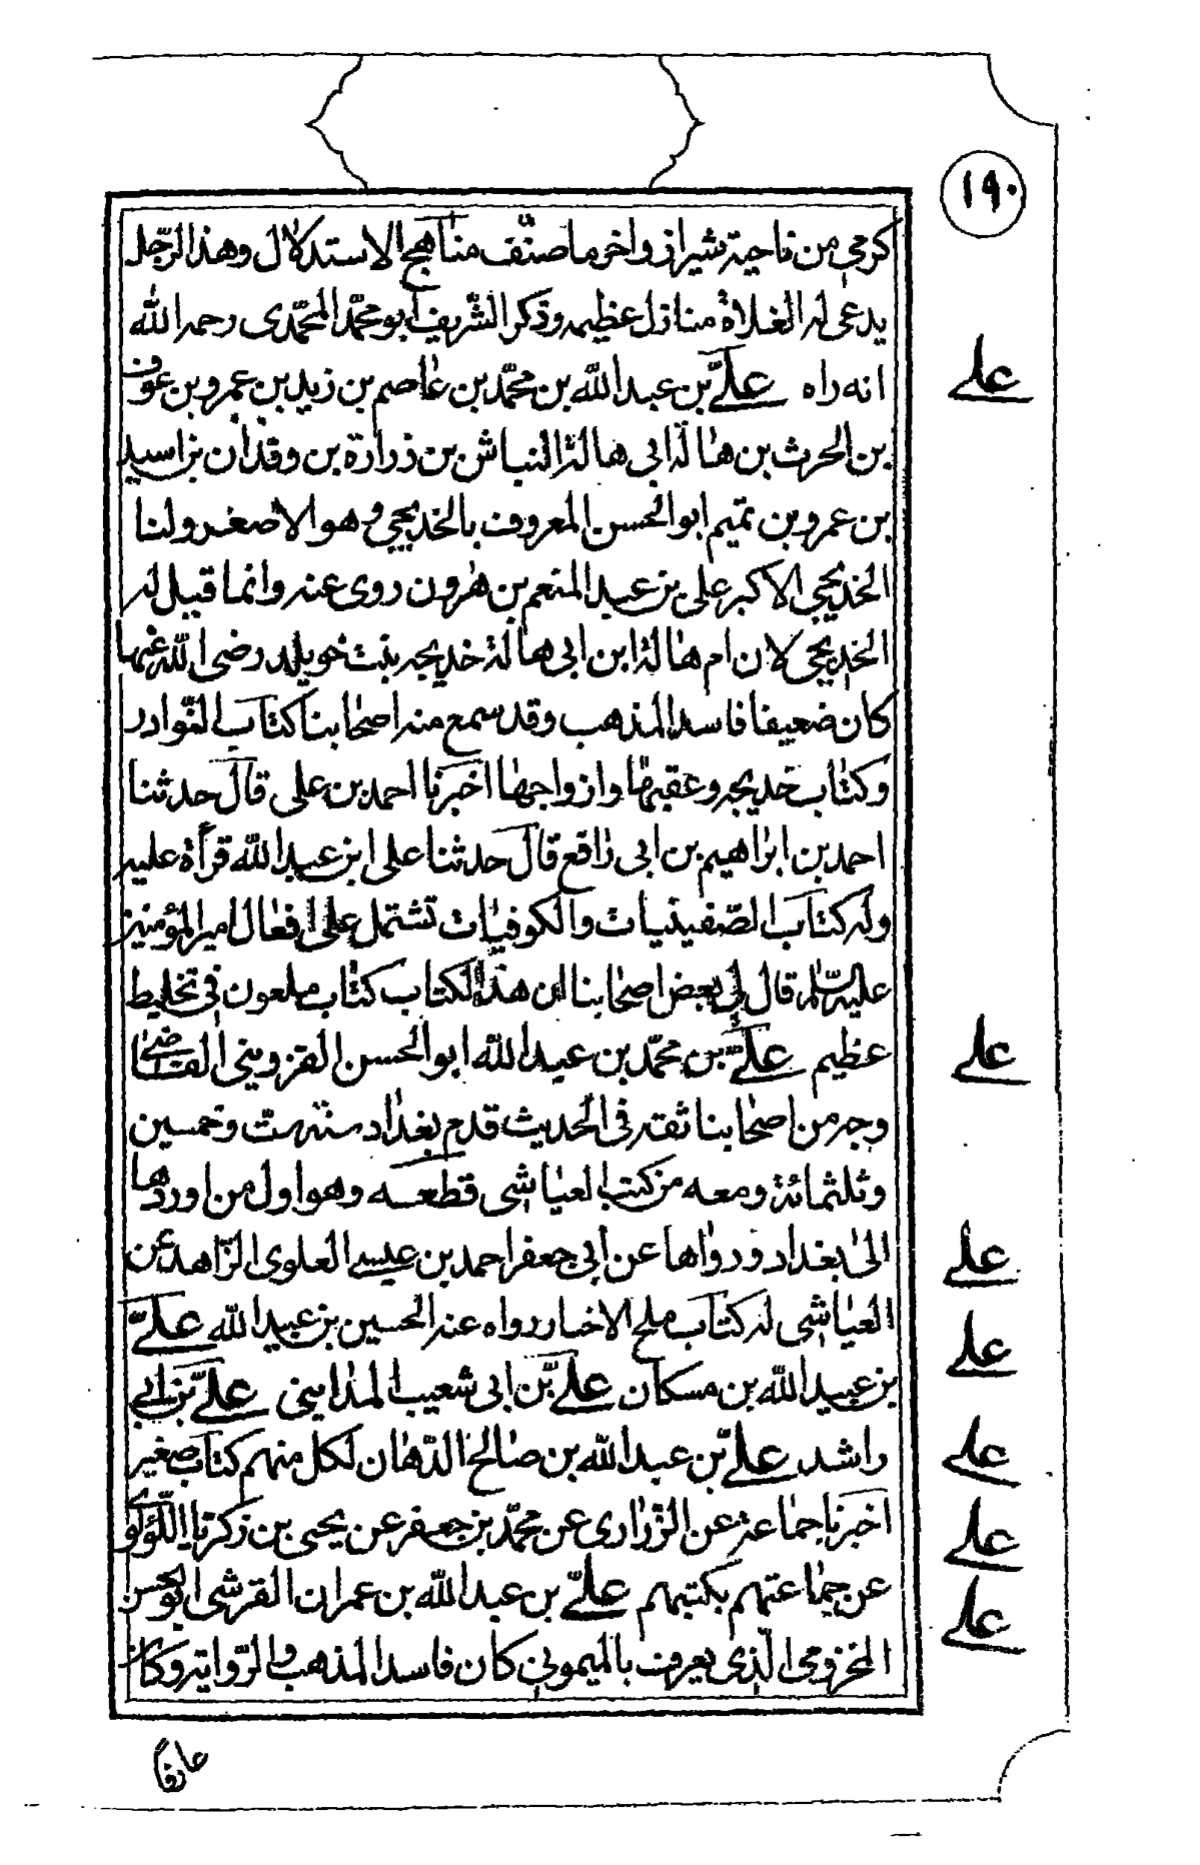 ١٩٠
كرمى من ناحية شيراز واخر ما صنّف مناهج الاستدلال وهذا الرّجل
يدعى له الغلاة منازل عظيمه وذكر الشّريف ابو محمّد المحمّدى رحمه الله
انه راه علىّ بن عبد الله بن محمّد بن عاصم بن زيد بن عمرو بن عوف
على
بن الحرث بن هالة ابى هالة النباش بن زرارة بن وقدان بن اسيد
بن عمرو بن تميم ابو الحسن المعروف بالخديجى وهو الاصغر ولنا
الخديجى الاكبر على بن عبد المنعم بن هرون روى عنه وانما قيل له
الخديجى لان ام هالة ابن ابى هالة خديجه بنت خويلد رضى الله عنها
كان ضعيفا فاسد المذهب وقد سمع منه اصحابنا كتاب النّوادر
وكتاب خديجه وعقبها وازواجها اخبرنا احمد بن على قال حدثنا
احمد بن ابراهيم بن ابى رافع قال حدثنا على ابن عبد الله قرأة عليه
وله كتاب الصّفينيات والكوفيات تشتمل على افعال امير المؤمنين
عليه السّلم قال لى بعض اصحابنا ان هذا الكتاب كتاب ملعون فى تخليط
عظيم علىّ بن محمّد بن عبد الله ابو الحسن القزوينى القاضى
على
وجه من اصحابنا ثقه فى الحديث قدم بغداد سنة ست وخمسين
وثلثمائة ومعه من كتب العياشى قطعه وهو اول من اوردها
الى بغداد ورواها عن ابى جعفر احمد بن عيسى العلوى الزّاهد عن
على
العياشى له كتاب ملح الاخبار رواه عنه الحسين بن عبيد الله علىّ
على
بن عبيد الله بن مسكان علىّ بن ابى شعيب المداينى علىّ بن ابى
راشد علىّ بن عبد الله بن صالح الدّهان لكل منهم كتاب صغير
على
اخبرنا جماعة عن الزّرارى عن محمّد بن جعفر عن يحيى بن زكريا اللّؤلؤى
على
عن جماعتهم بكتبهم علىّ بن عبد الله بن عمران القرشى ابو الحسن
على
المخزومى الّذى يعرف بالميمونى كان فاسد المذهب والرّواية وكان
عارفا